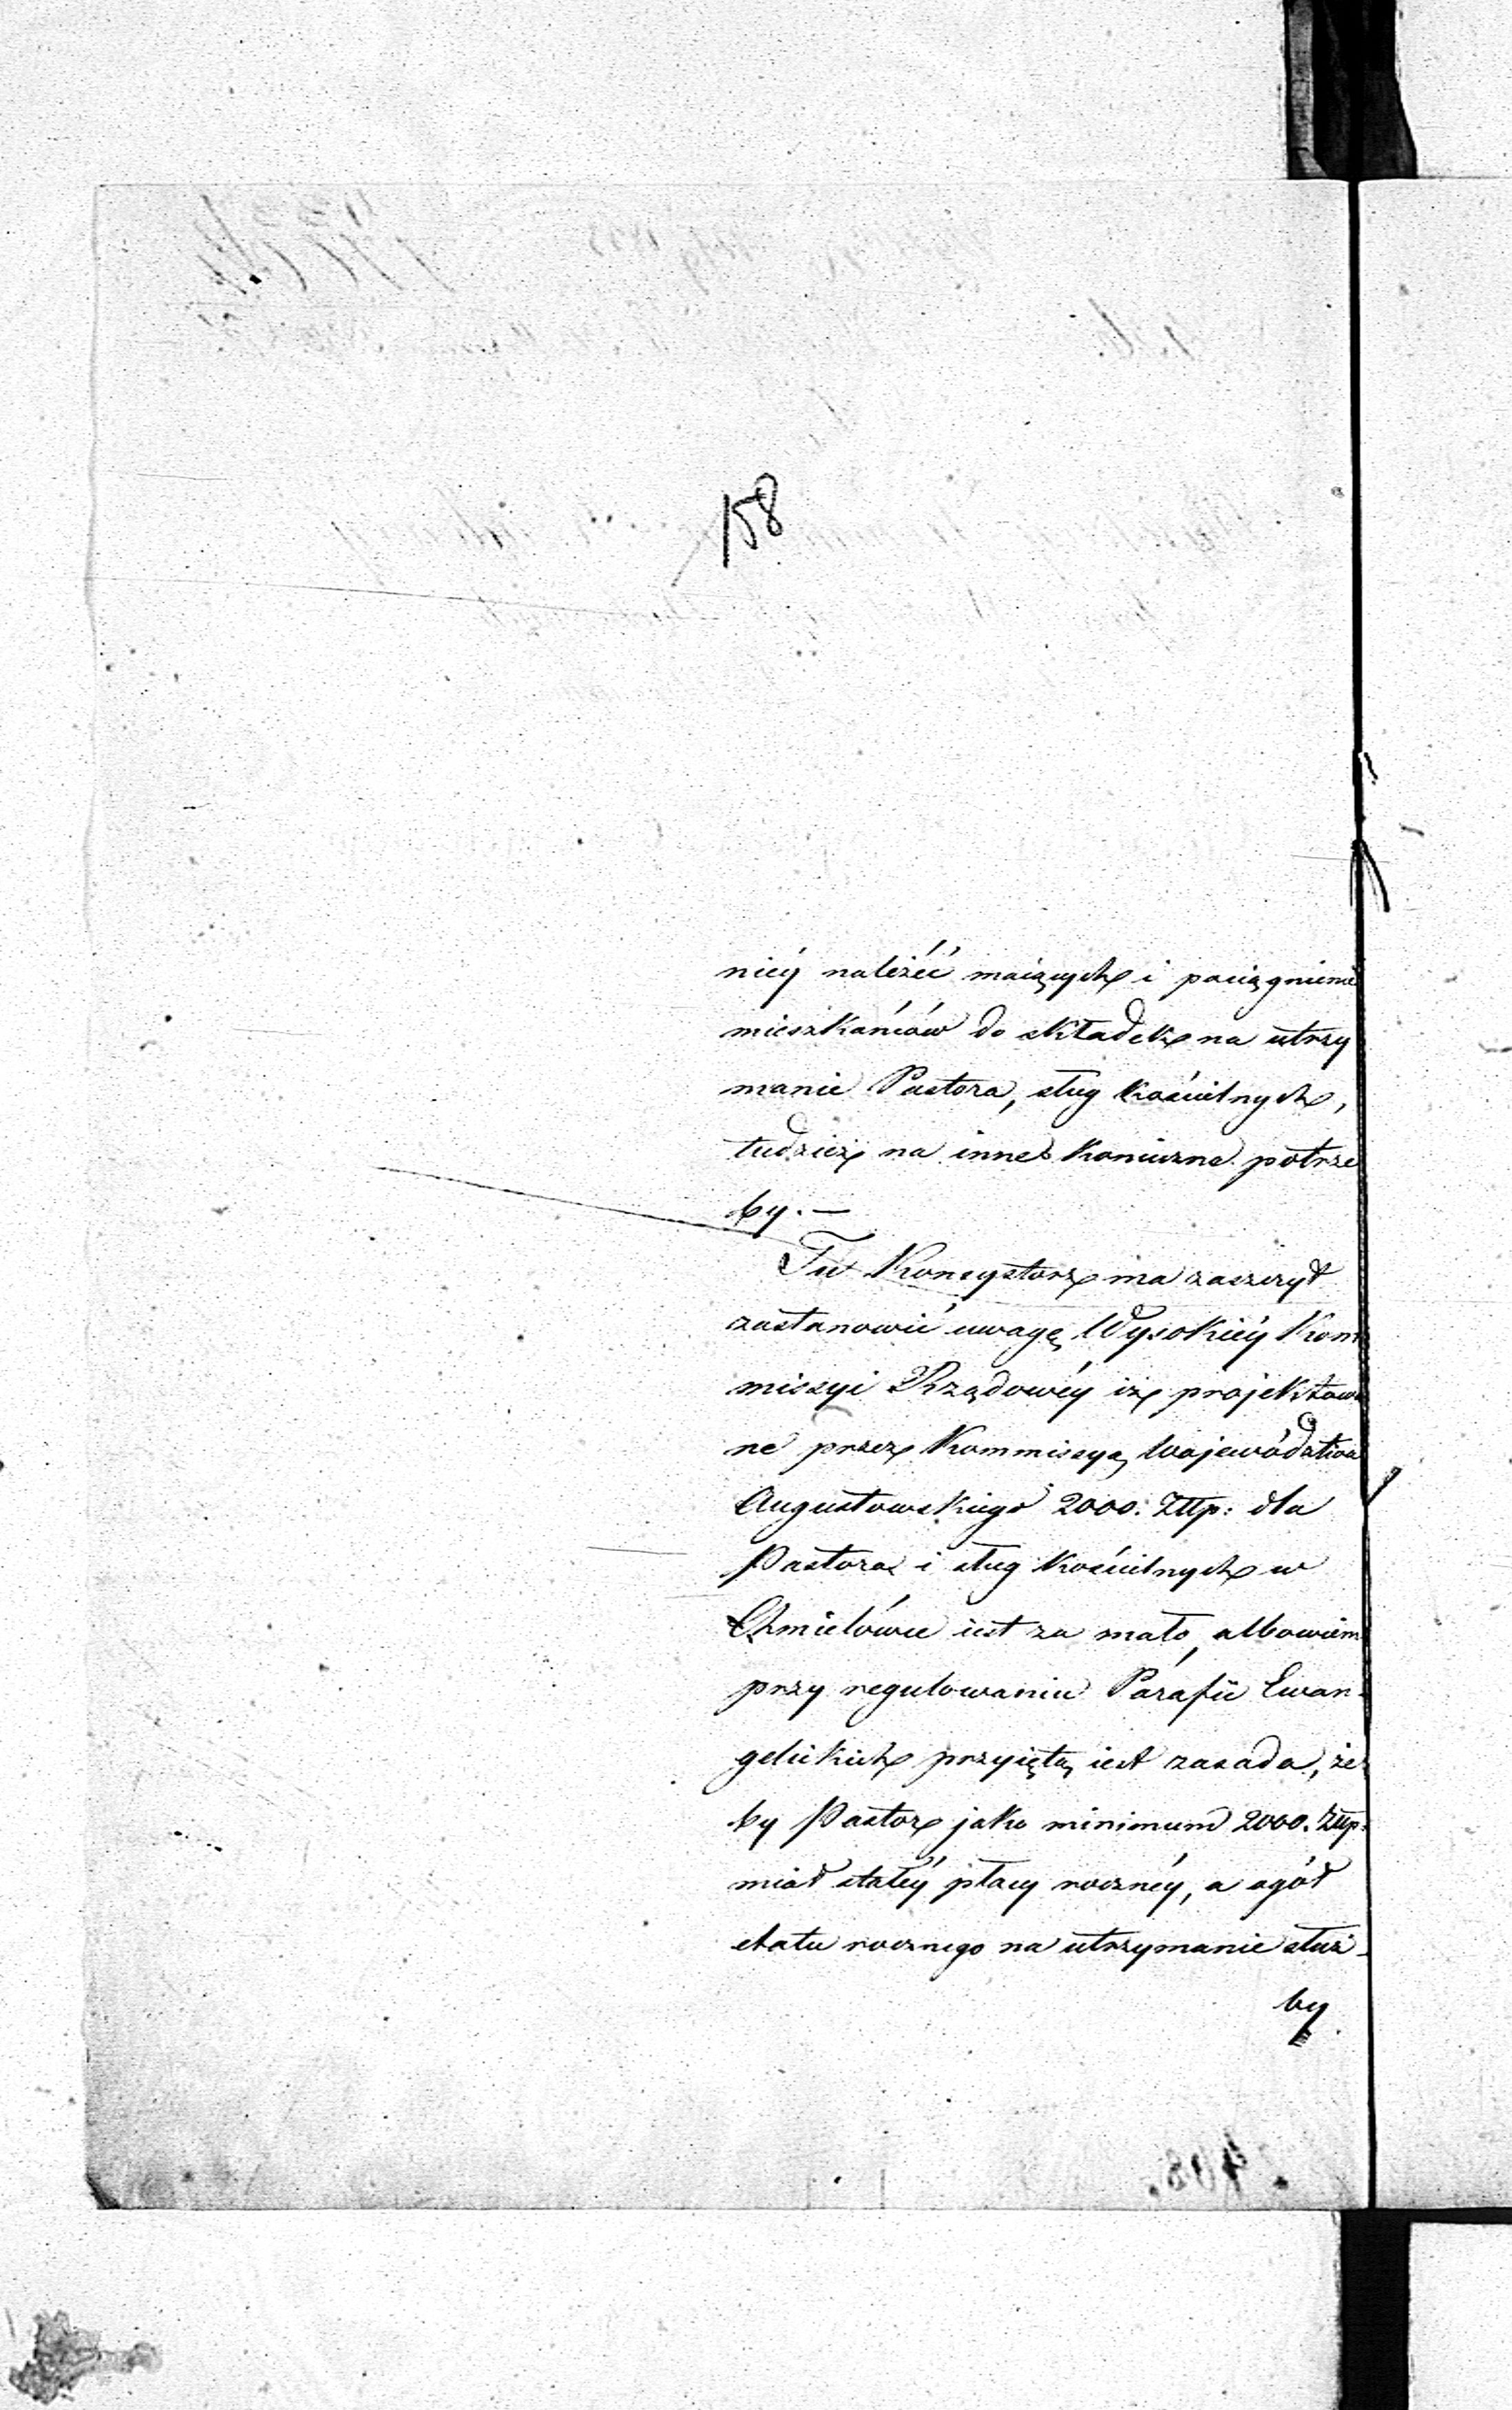 158
niéy należéć maiących i pociągnienie
mieszkańców do składek na utrzy
manie Pastora, sług kościelnych,
tudzież na inne konieczne potrze
by. —
Tu Konsystorz ma zaszczyt
zastanowić uwagę Wysokiéy Kom
missyi Rządowéy iż projektowa
ne przez Kommissyą Województwa
Augustowskiego 2000. Złłp: dla
Pastora i sług kościelnych w
Chmielówce iest za mało, albowiem
przy regulowaniu Parafii Ewan-
gelickich przyiętą iest zasada, że
by Pastor jako minimum 2000. Złłp:
miał stałéy płacy rocznéy, a ogół
etatu rocznego na utrzymanie służ-
by